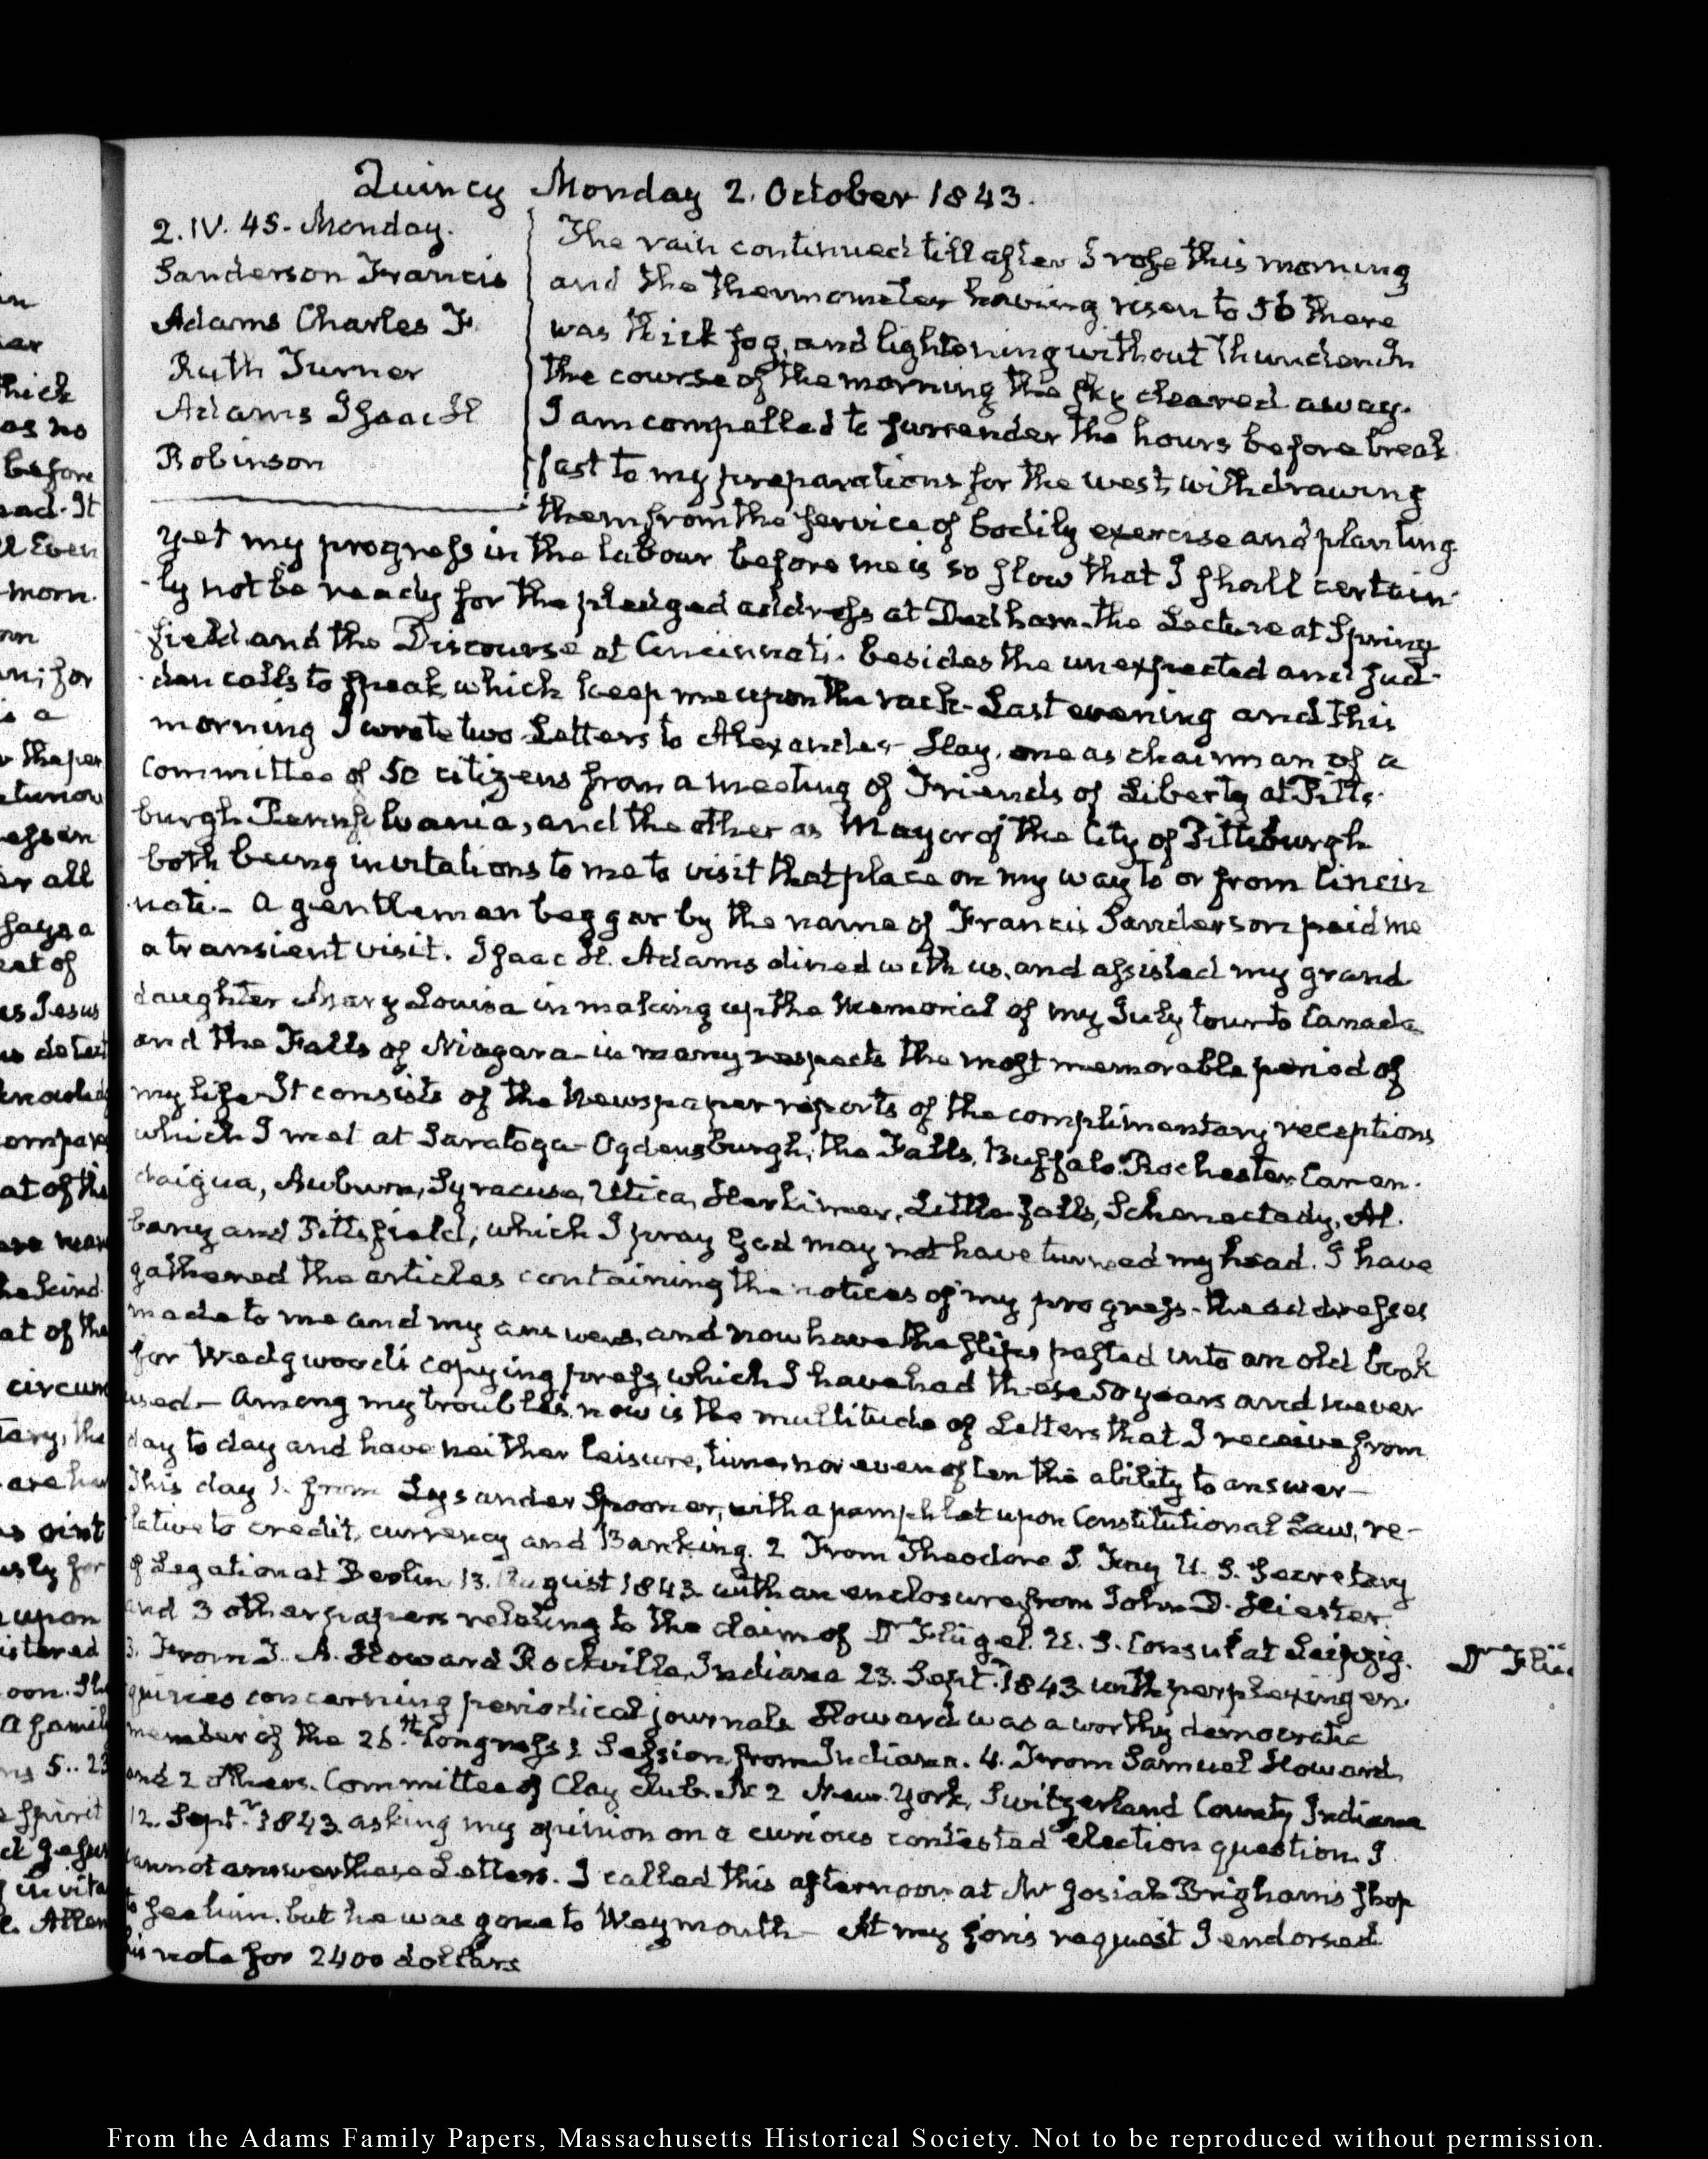 Quincy Monday 2. October 1843.
2. IV. 45. Monday.
Sanderson Francis
Adams Charles F.
Ruth Turner
Adams Isaac H
Robinson
The rain continued till after I rose this morning
and the thermometer having risen to 56 there
was thick fog, and lightening without thunder. In
the course of the morning the sky cleared away.
I am compelled to surrender the hours before break
fast to my preparations for the west, withdrawing
them from the service of bodily exercise and planting
yet my progress in the labour before me is so slow that I shall certain
ly not be ready for the pledged address at Dedham. the Lecture at Spring
field and the Discourse at Cincinnati. besides the unexpected and sud-
den calls to speak, which keep me upon the rack. Last evening and this
morning I wrote two Letters to Alexander Hay, one as chairman of a
Committee of 50 citizens from a meeting of Friends of Liberty at Pitts-
burgh Pennsylvania, and the other as Mayor of the City of Pittsburgh
both being invitations to me to visit that place on my way to or from Cincin
nati. A gentleman beggar by the name of Francis Sanderson paid me
a transient visit. Isaac H. Adams dined with us, and assisted my grand
daughter Mary Louisa in making up the Memorial of my July tour to Canada
and the Falls of Niagara in many respects the most memorable period of
my life. It consists of the Newspaper reports of the complimentary receptions
which I met at Saratoga Ogdensburgh, the Falls, Buffalo. Rochester Canan-
daigua, Auburn, Syracuse, Utica, Herkimer, Little falls, Schenectady, Al-
bany and Pittsfield, which I pray God may not have turned my head. I have
gathered the articles containing the notices of my progress. the addresses
made to me and my answers, and now have the slips pasted into an old book
for Wedgwood's copying press, which I have had these 50 years and never
used. Among my troubles now is the multitude of Letters that I receive from
day to day and have neither leisure, time, nor even often the ability to answer—
This day 1. from Lysander Spooner, with a pamphlet upon Constitutional Law, re-
lative to credit, currency and Banking. 2 From Theodore S. Fay U. S. Secretary
of Legation at Berlin 13. August 1843 with an enclosure from John D. Hiester
and 3 other papers relating to the claim of Dr. Flügel. U. S. Consul at Leipzig.
3. From T. A. Howard Rockville, Indiana 23. Septr. 1843 with perplexing en-
quiries concerning periodical journals. Howard was a worthy democratic
member of the 26.th Congress 2 Session from Indiana. 4. From Samuel Howard
and 2 others. Committee of Clay Club. N. 2 New York, Switzerland County, Indiana
12. Septr. 1843. asking my opinion on a curious contested election question. I
cannot answer these Letters. I called this afternoon at Mr Josiah Brigham's shop
to see him. but he was gone to Weymouth— At my son's request I endorsed
his note for 2400 dollars
From the Adams Family Papers, Massachusetts Historical Society. Not to be reproduced without permission.